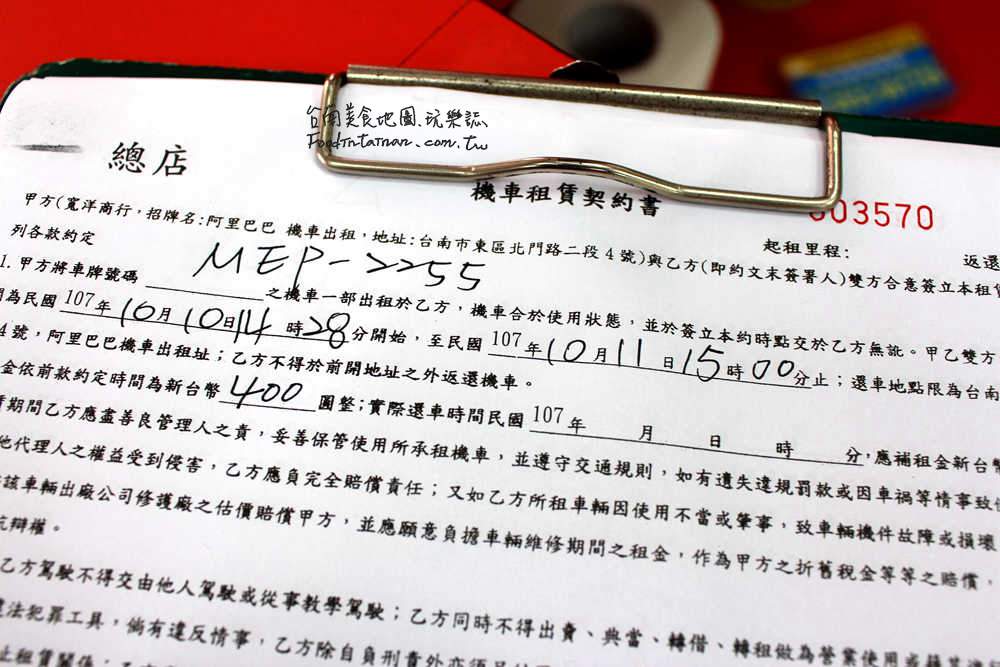 台南美食地圖.玩樂誌
Foodintainan.com.tw
總店
機車租賃契約書
003570
甲方(寬洋商行,招牌名:阿里巴巴 機車出租,地址:台南市東區北門路二段4號)與乙方(即約文末簽署人)雙方合意簽立本租
起租里程:
返還
列各款約定
1.甲方將車牌號碼 MEP-2255 之機車一部出租於乙方,機車合於使用狀態,並於簽立本約時點交於乙方無訛。甲乙雙方
間為民國107年10月10日14時28分開始,至民國107年10月11日15時00分止;還車地點限為台南
4號,阿里巴巴機車出租址;乙方不得於前開地址之外返還機車。
金依前款約定時間為新台幣400圓整;實際還車時間民國107年 月 日 時 分,應補租金新台幣
期間乙方應盡善良管理人之責,妥善保管使用所承租機車,並遵守交通規則,如有遺失違規罰款或因車禍等情事致
他代理人之權益受到侵害,乙方應負完全賠償責任;又如乙方所租車輛因使用不當或肇事,致車輛機件故障或損壞
該車輛出廠公司修護廠之估價賠償甲方,並應願意負擔車輛維修期間之租金,作為甲方之折舊稅金等等之賠償,
抗辯權。
乙方駕駛不得交由他人駕駛或從事教學駕駛;乙方同時不得出賣、典當、轉借、轉租做為營業使用或
違法犯罪工具,倘有違反情事,乙方除自負刑責外亦須
止租賃關係;乙